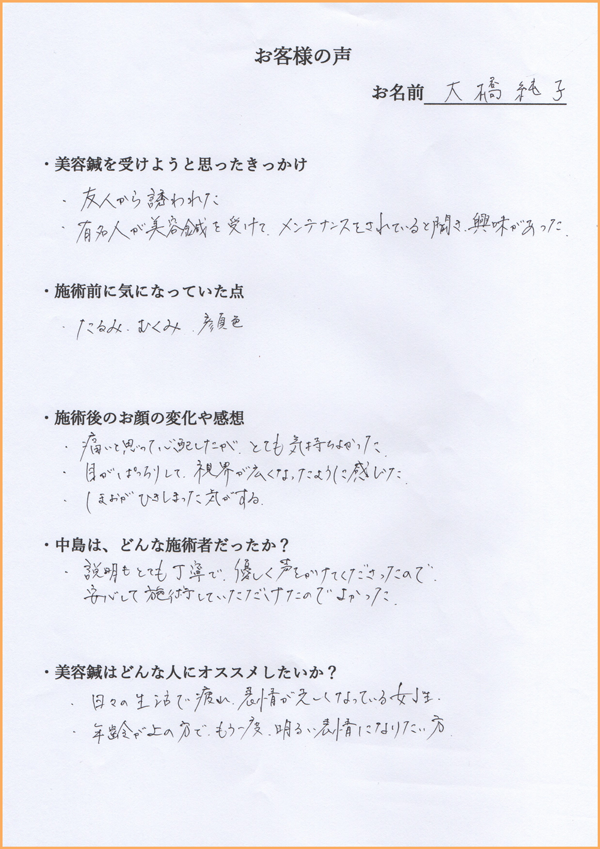 お客様の声
お名前 大橋純子
・美容鍼を受けようと思ったきっかけ
・友人から誘われた
・有名人が美容鍼を受けて、メンテナンスをされていると聞き、興味があった。
・施術前に気になっていた点
・たるみ、むくみ、顔色
・施術後のお顔の変化や感想
・痛いと思って、心配したが、とても気持ちよかった。
・目がぱっちりして、視界が広くなったように感じた。
・ほおがひきしまった気がする。
・中島は、どんな施術者だったか？
・説明もとても丁寧で、優しく声をかけてくださったので、
安心して施術していただけたのでよかった。
・美容鍼はどんな人にオススメしたいか？
・日々の生活で疲れ、表情が乏しくなっている女性。
・年齢が上の方で、もう一度、明るい表情になりたい方。